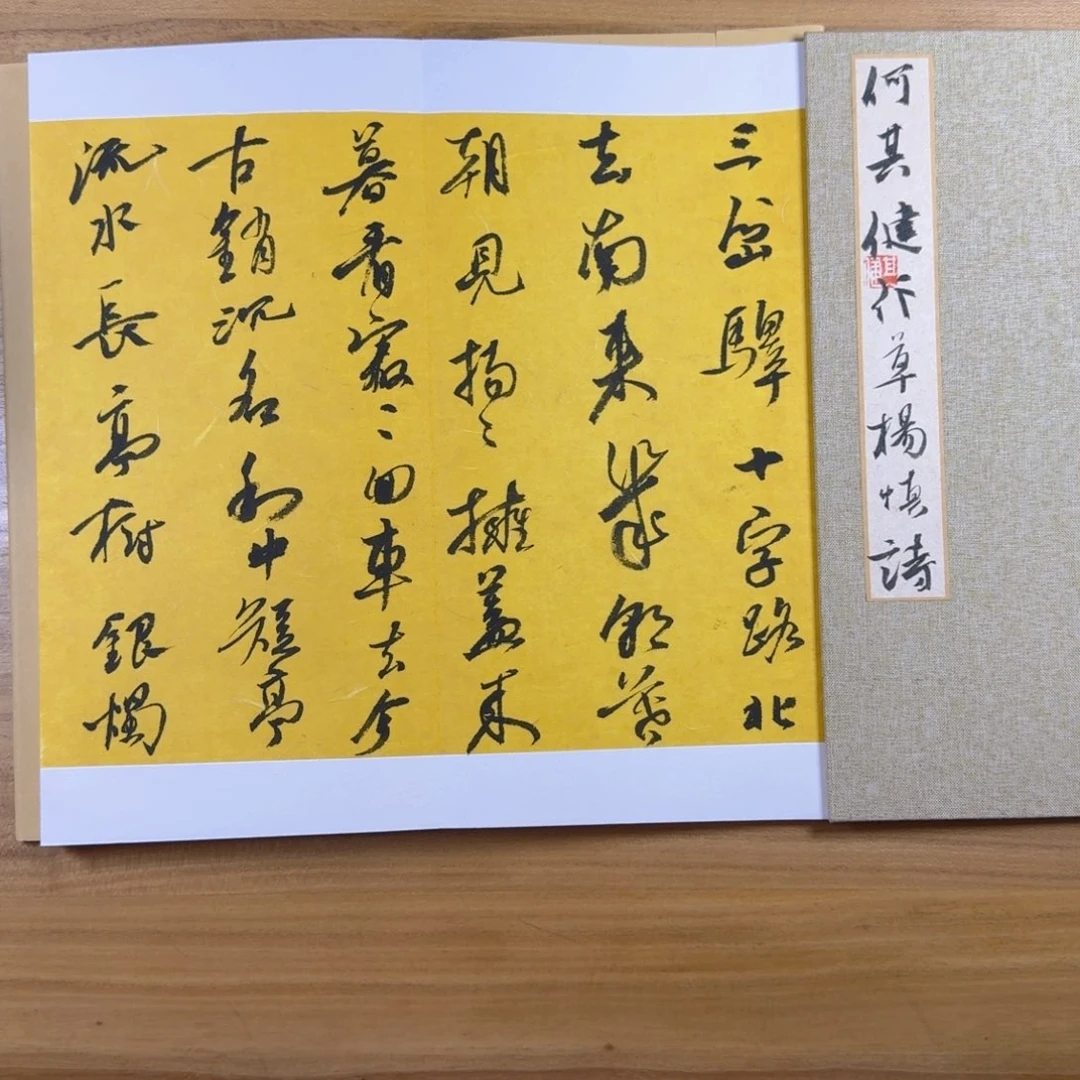 何其健行草楊慎詩
三岔驛十字路北
去南來幾朝暮
朝見揚〻擁蓋來
暮看寂〻回車去今
古銷沉名利中短亭
流水長亭樹銀燭